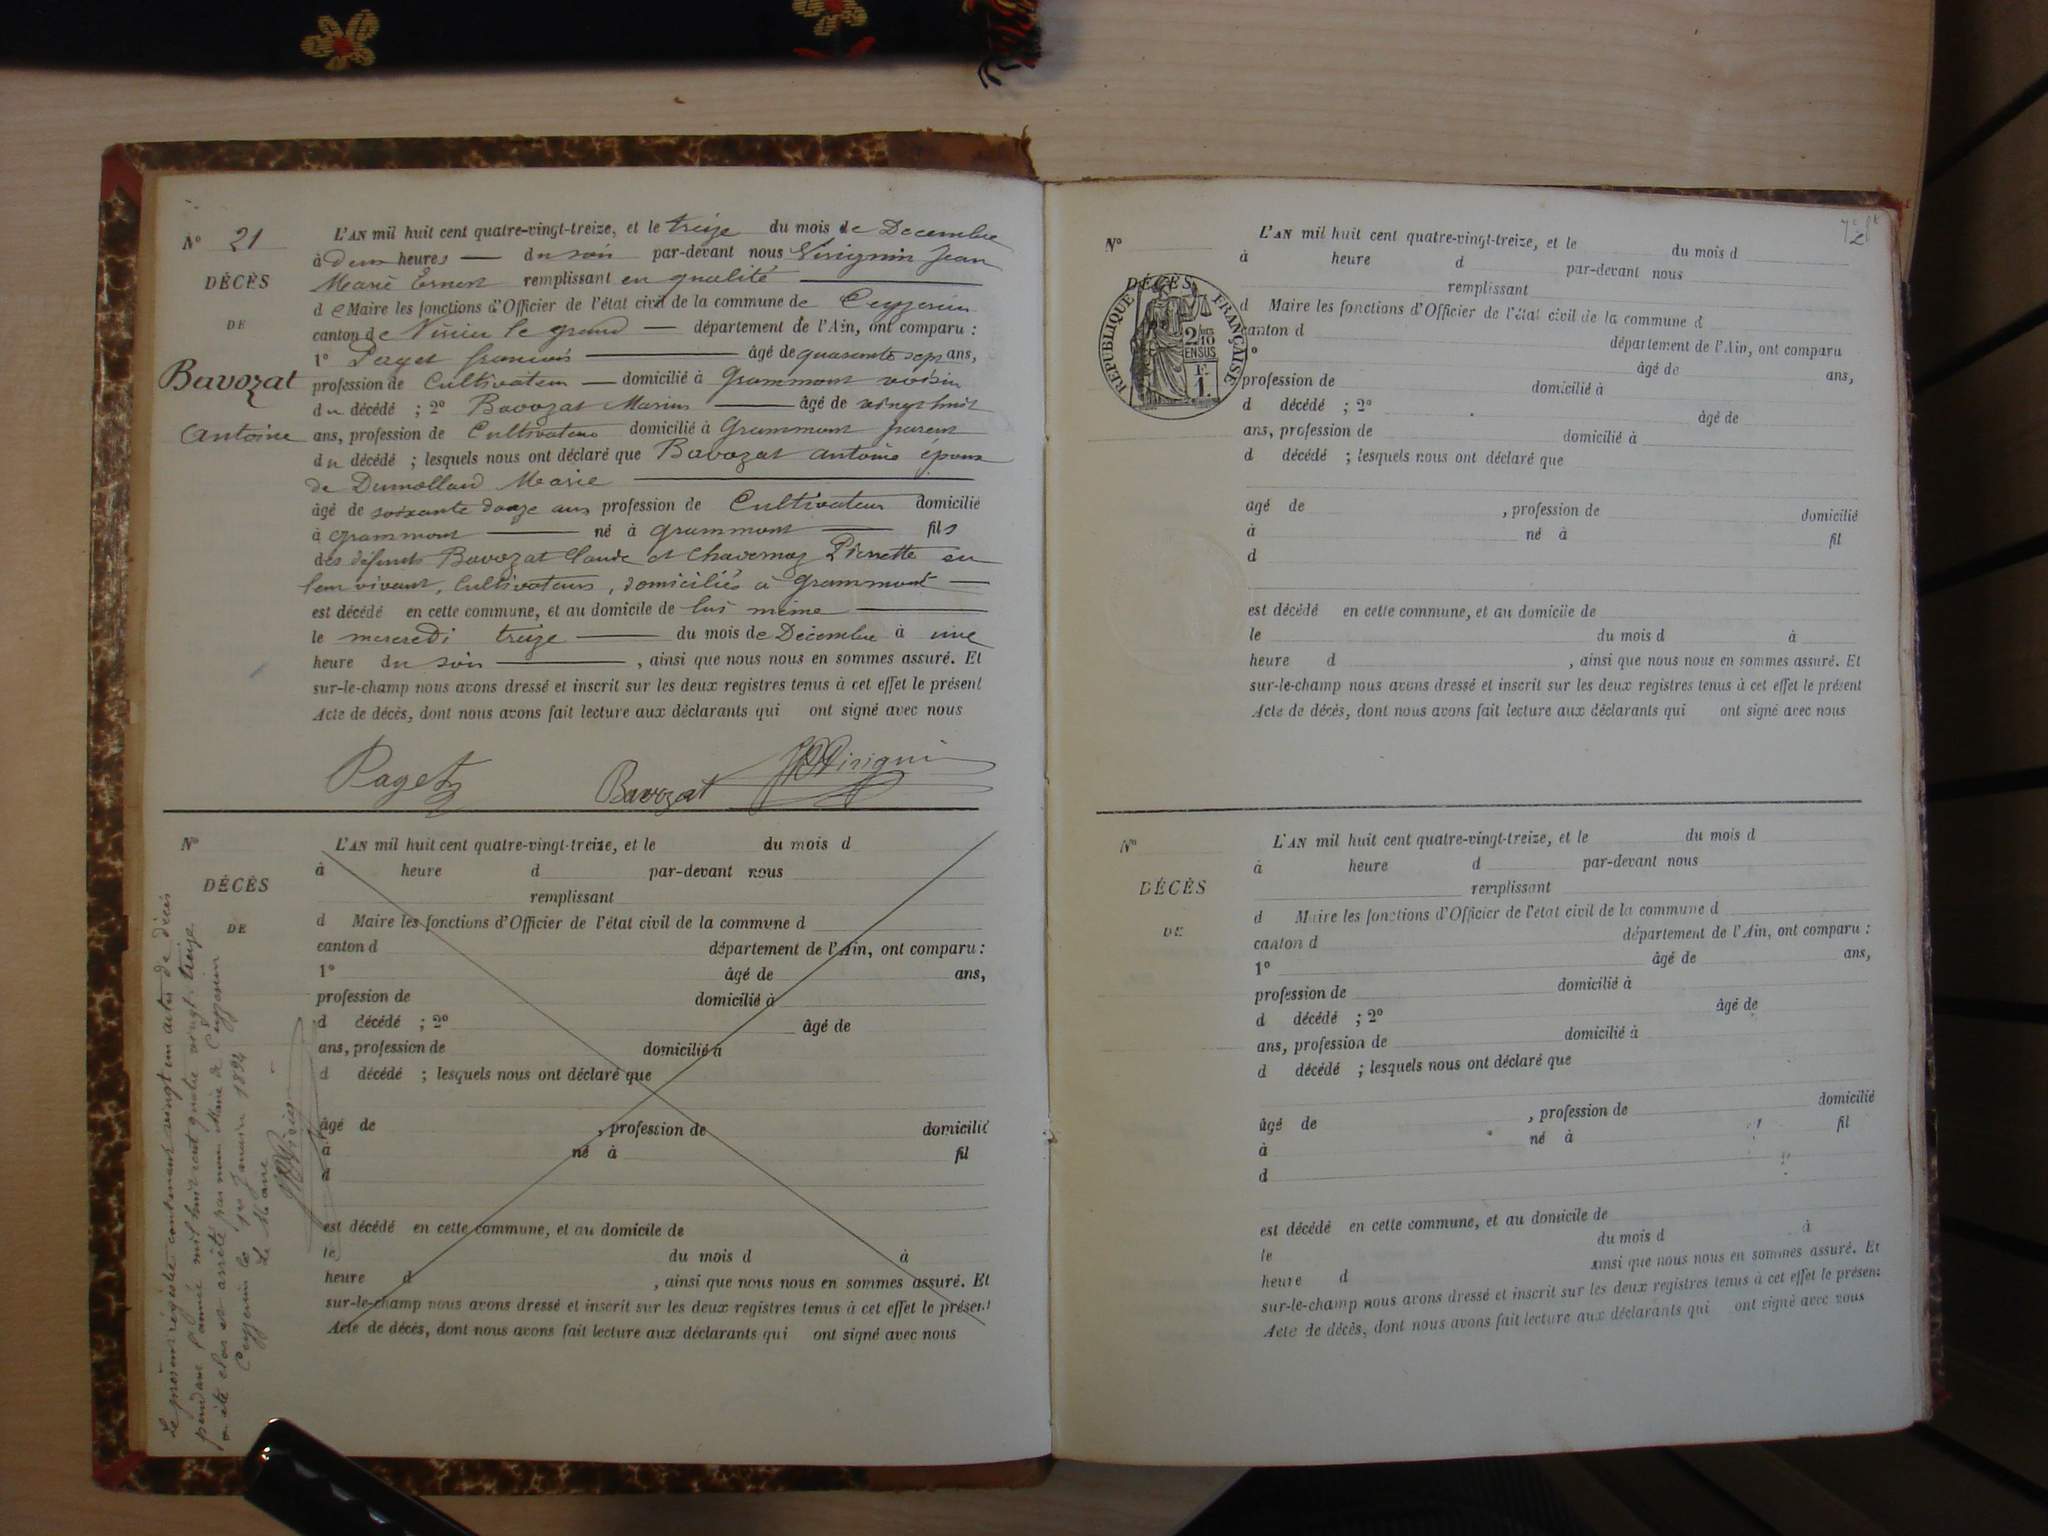 N° 21
DÉCÈS
DE
Bavozat
Antoine
L'AN mil huit cent quatre-vingt-treize, et le treize du mois de Decembre
à deux heures du soir par-devant nous Virignin Jean
Marie Ernest remplissant en qualité
de Maire les fonctions d'Officier de l'état civil de la commune de Ceyzerieu
canton de Virieu le grand département de l'Ain, ont comparu :
1° Paget françois âgé de quarante sept ans,
profession de Cultivateur domicilié à Grammont voisin
du décédé ; 2° Bavozat Marius âgé de vingt huit
ans, profession de Cultivateur domicilié à Grammont parent
du décédé ; lesquels nous ont déclaré que Bavozat antoine époux
de Dumollard Marie
âgé de soixante douze ans profession de Cultivateur domicilié
à grammont né à grammont fils
des défunts Bavozat Claude et Chavernoz Pierrette en
leur vivant, Cultivateurs, domiciliés à grammont
est décédé en cette commune, et au domicile de lui même
le mercredi treize du mois de Décembre à une
heure du soir , ainsi que nous nous en sommes assuré. Et
sur-le-champ nous avons dressé et inscrit sur les deux registres tenus à cet effet le présent
Acte de décès, dont nous avons fait lecture aux déclarants qui ont signé avec nous
Paget
Bavozat
Virignin
N°
DÉCÈS
DE
L'AN mil huit cent quatre-vingt-treize, et le du mois d
à heure d par-devant nous
remplissant
d Maire les fonctions d'Officier de l'état civil de la commune d
canton d département de l'Ain, ont comparu :
1° âgé de ans,
profession de domicilié à
d décédé ; 2° âgé de
ans, profession de domicilié à
d décédé ; lesquels nous ont déclaré que
âgé de , profession de domicilié
à né à fil
d
est décédé en cette commune, et au domicile de
le du mois d à
heure d , ainsi que nous nous en sommes assuré. Et
sur-le-champ nous avons dressé et inscrit sur les deux registres tenus à cet effet le présent
Acte de décès, dont nous avons fait lecture aux déclarants qui ont signé avec nous
Le présent régistre contenant vingt un actes de décès
pendant l'année mil huit cent quatre vingt treize
a été clos et arrêté par nous Maire de Ceyzerieu
Ceyzerieu le 1er Janvier 1894
Le Maire
N°
DÉCÈS
RÉPUBLIQUE FRANÇAISE
2/10
EN SUS
F.
1.
L'AN mil huit cent quatre-vingt-treize, et le du mois d
à heure d par-devant nous
remplissant
d Maire les fonctions d'Officier de l'état civil de la commune d
canton d département de l'Ain, ont comparu
° âgé de ans,
profession de domicilié à
d décédé ; 2° âgé de
ans, profession de domicilié à
d décédé ; lesquels nous ont déclaré que
âgé de , profession de domicilié
à né à fil
d
est décédé en cette commune, et au domicile de
le du mois d à
heure d , ainsi que nous nous en sommes assuré. Et
sur-le-champ nous avons dressé et inscrit sur les deux registres tenus à cet effet le présent
Acte de décès, dont nous avons fait lecture aux déclarants qui ont signé avec nous
N°
DÉCÈS
DE
L'AN mil huit cent quatre-vingt-treize, et le du mois d
à heure d par-devant nous
remplissant
d Maire les fonctions d'Officier de l'état civil de la commune d
canton d département de l'Ain, ont comparu :
1° âgé de ans,
profession de domicilié à
d décédé ; 2° âgé de
ans, profession de domicilié à
d décédé ; lesquels nous ont déclaré que
âgé de , profession de domicilié
à né à fil
d
est décédé en cette commune, et au domicile de
le du mois d à
heure d ainsi que nous nous en sommes assuré. Et
sur-le-champ nous avons dressé et inscrit sur les deux registres tenus à cet effet le présent
Acte de décès, dont nous avons fait lecture aux déclarants qui ont signé avec nous